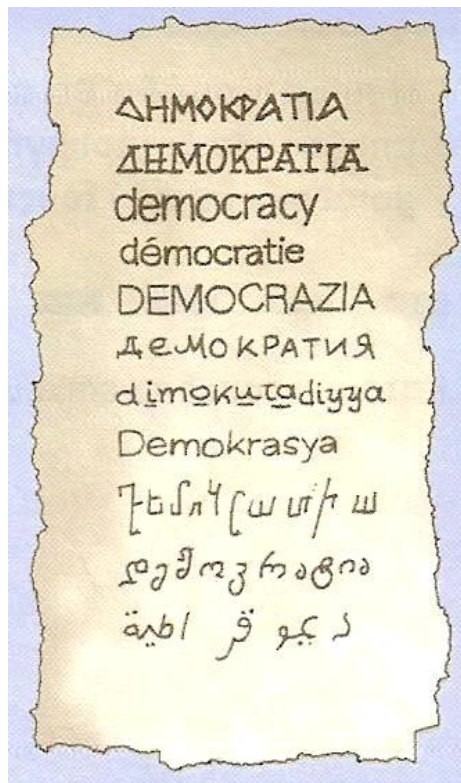 ΔΗΜΟΚΡΑΤΙΑ
ΔΗΜΟΚΡΑΤΙΑ
democracy
démocratie
DEMOCRAZIA
ДеМОКРАТИЯ
Demokrasya
Դեմոկրատիա
დემოკრატია
د يمو قر اطية